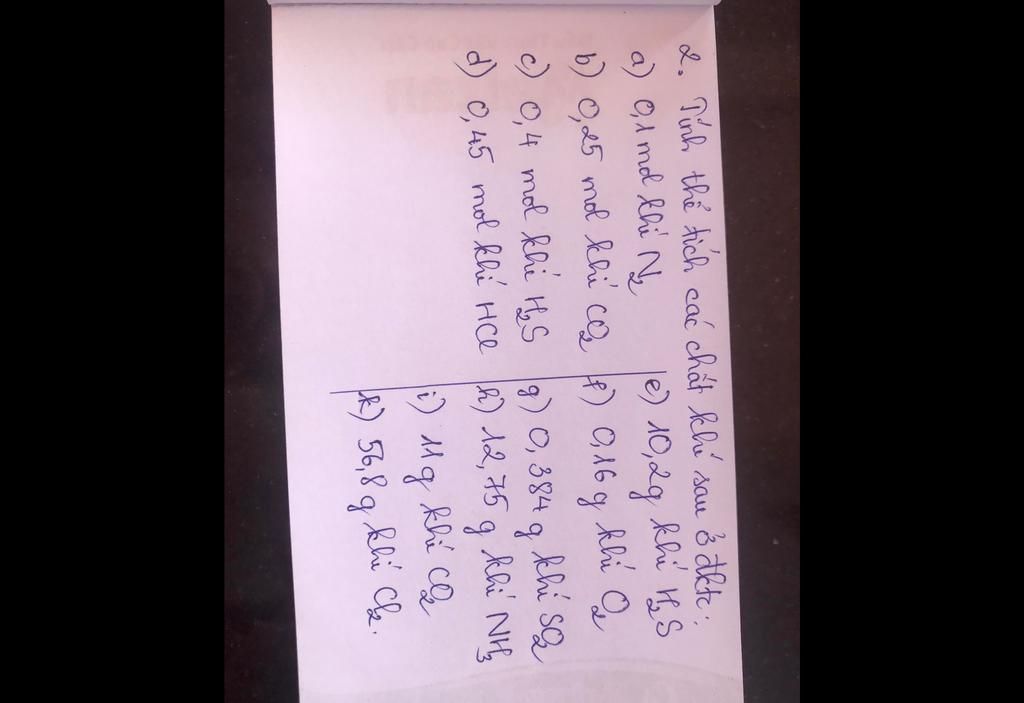 2. Tính thể tích các chất khí sau ở đktc:
a) 0,1 mol khí N2
b) 0,25 mol khí CO2
c) 0,4 mol khí H2S
d) 0,45 mol khí HCl
e) 10,2g khí H2S
f) 0,16 g khí O2
g) 0,384 g khí SO2
h) 12,75 g khí NH3
i) 11g khí CO2
k) 56,8 g khí Cl2.